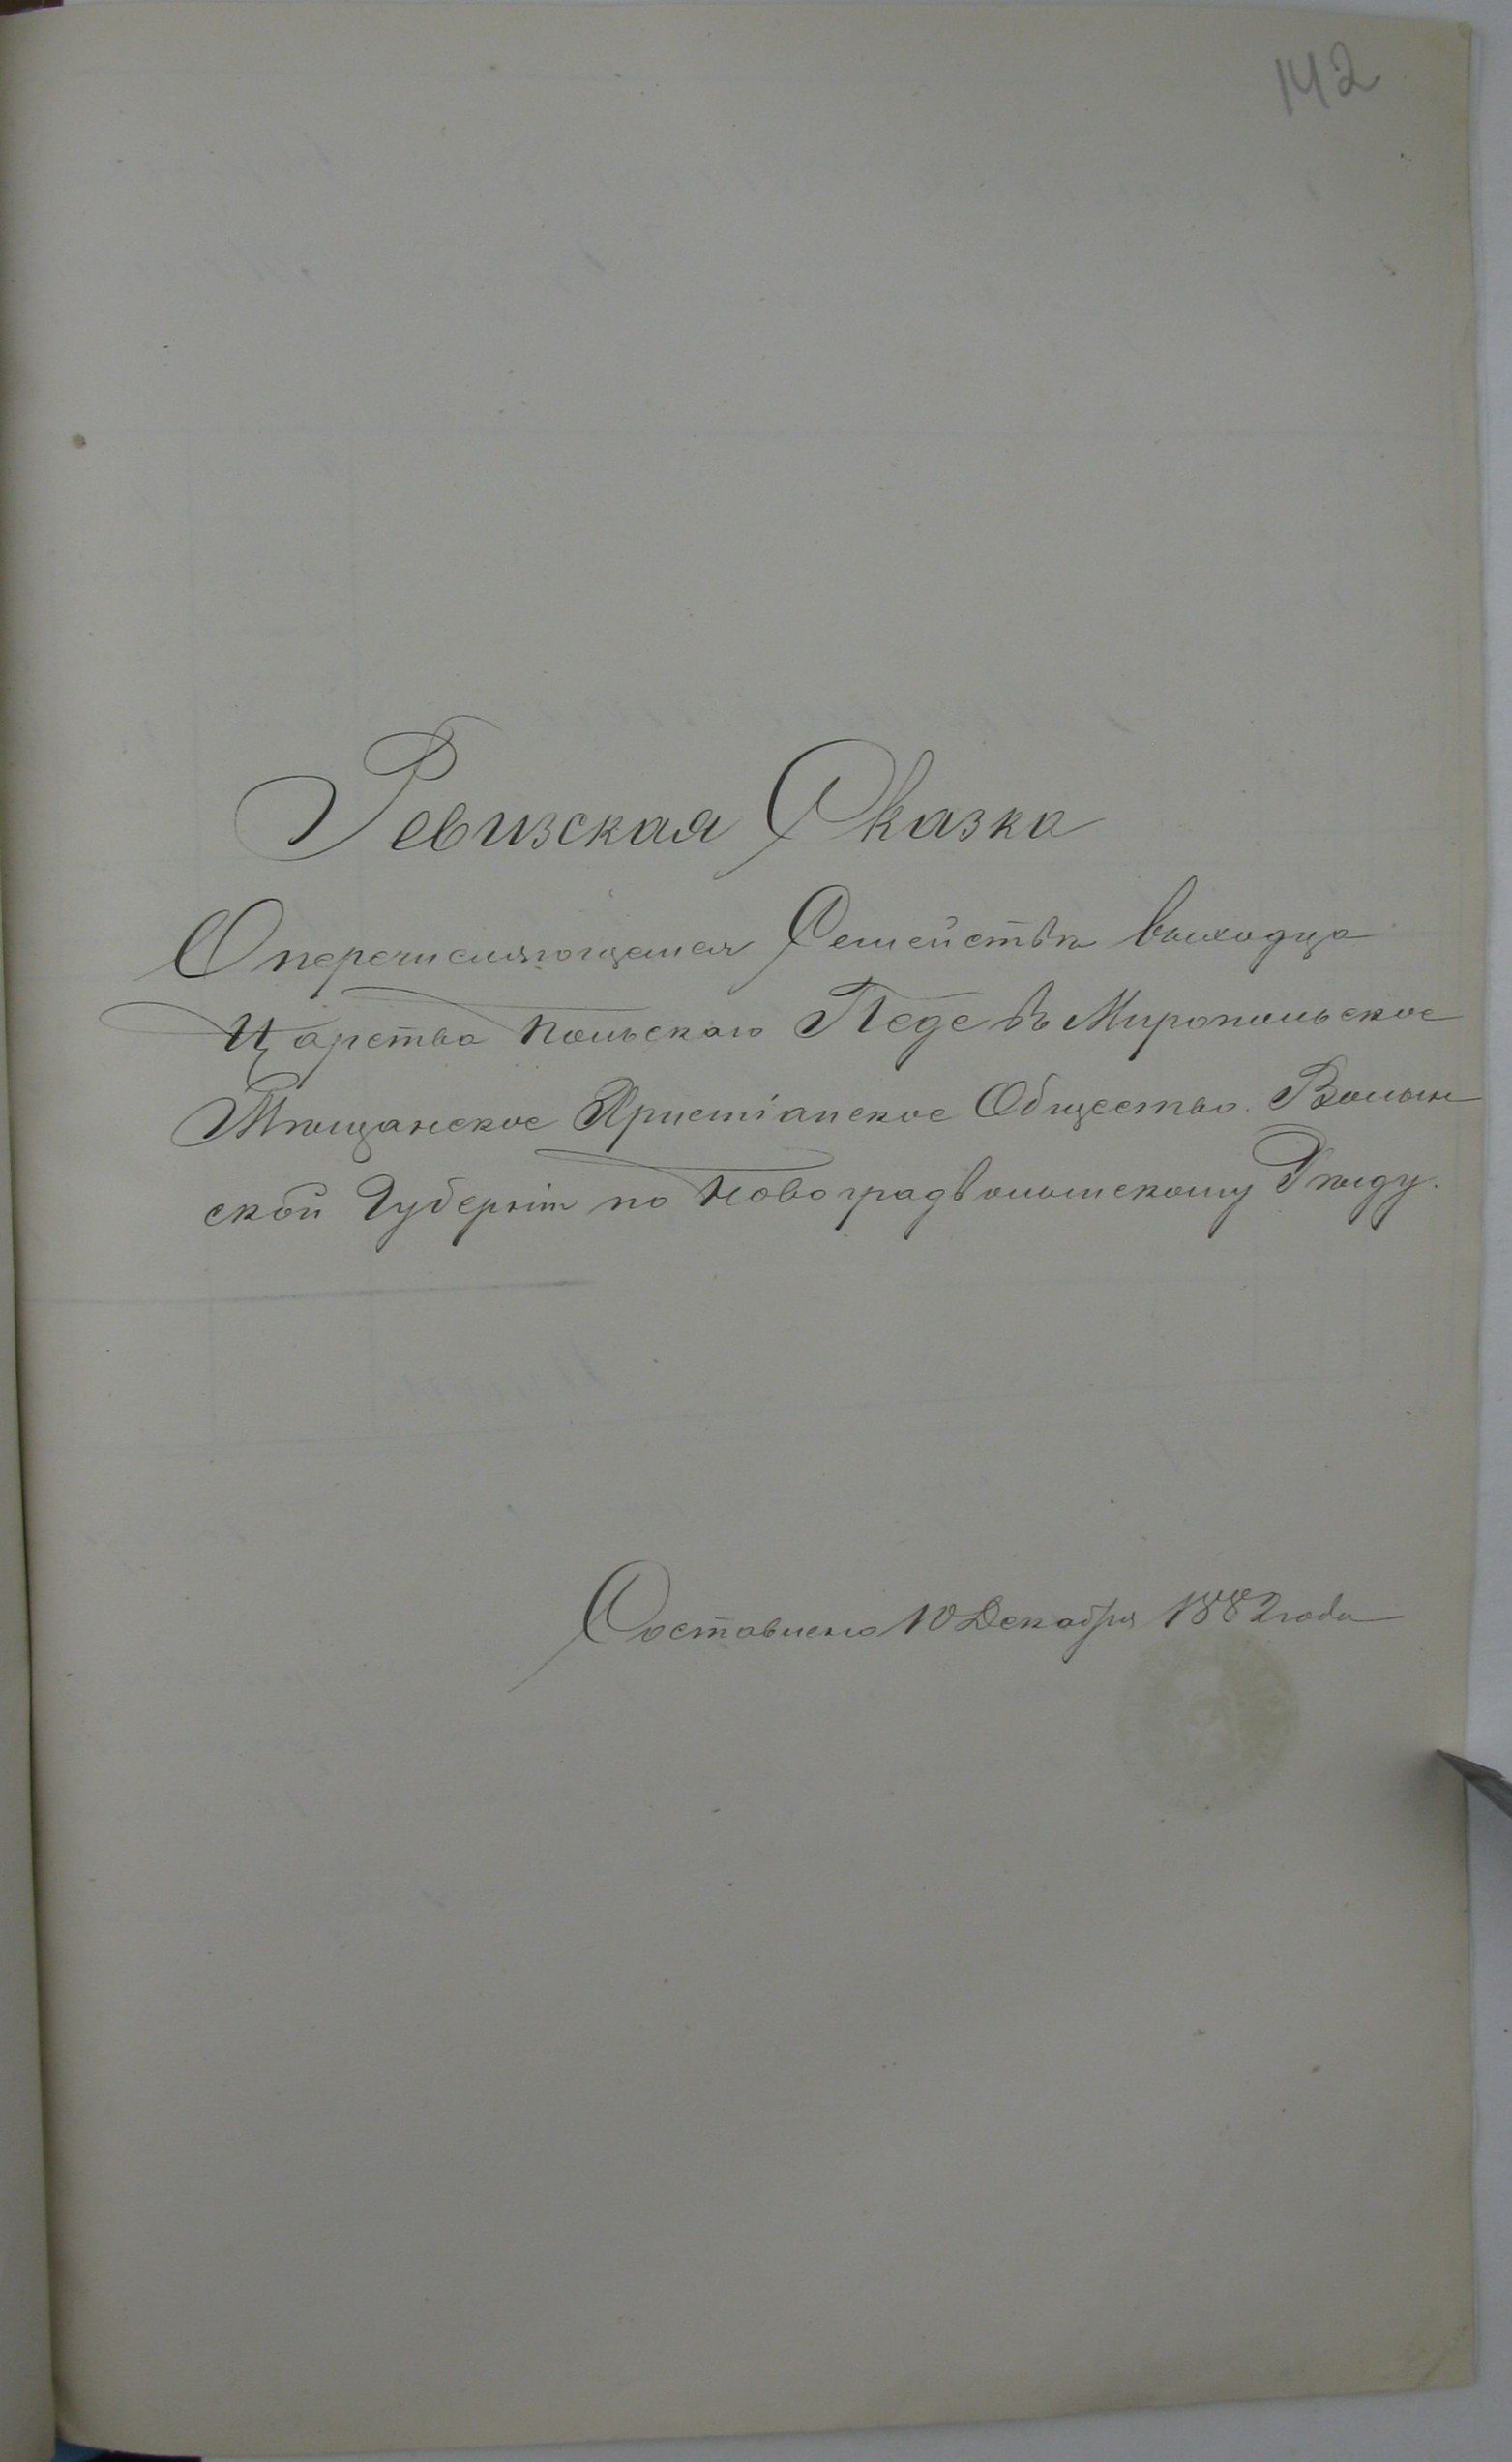 142
Ревизская Сказка
О перечисляющемся Семействѣ выходца
Царства Польскаго Педе въ Миропольское
Мѣщанское Христіанское Общество. Волын
ской Губерніи по Новоградволынскому Уѣзду.
Составлено 10 Декабря 1882 года